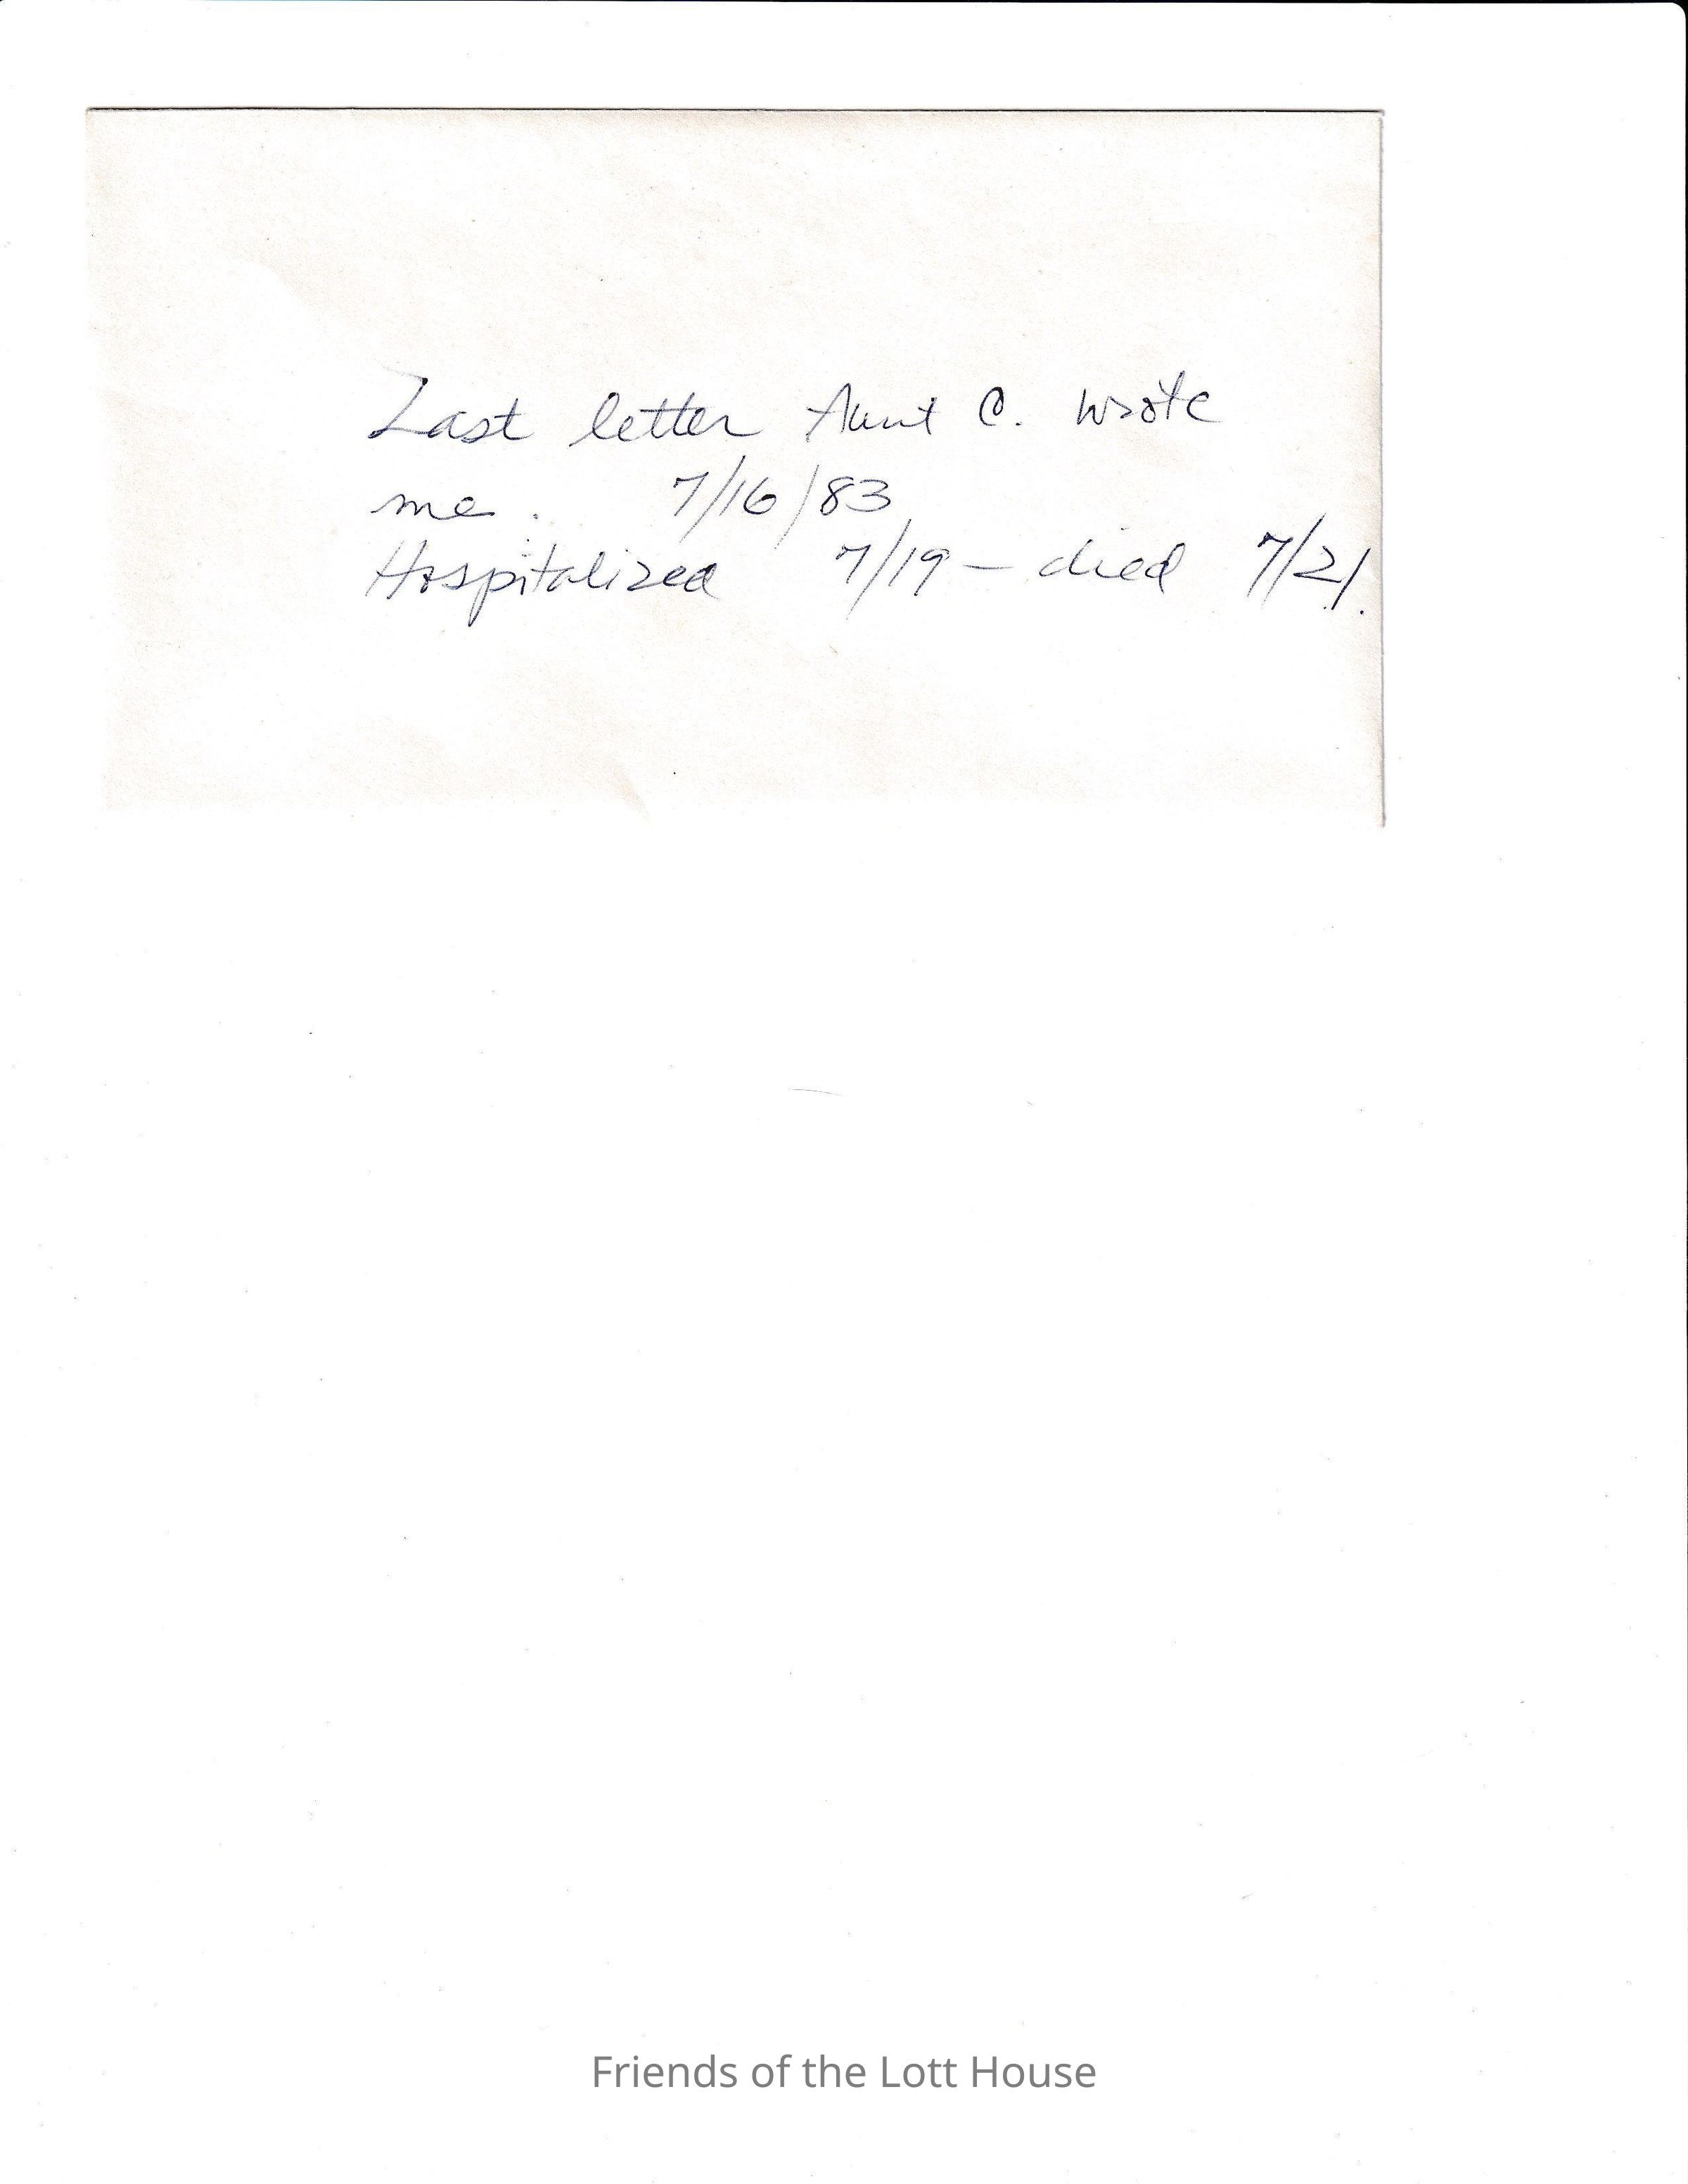 Last letter Aunt C. wrote
me. 7/16/83
Hospitalized 7/19 — died 7/21.
Friends of the Lott House